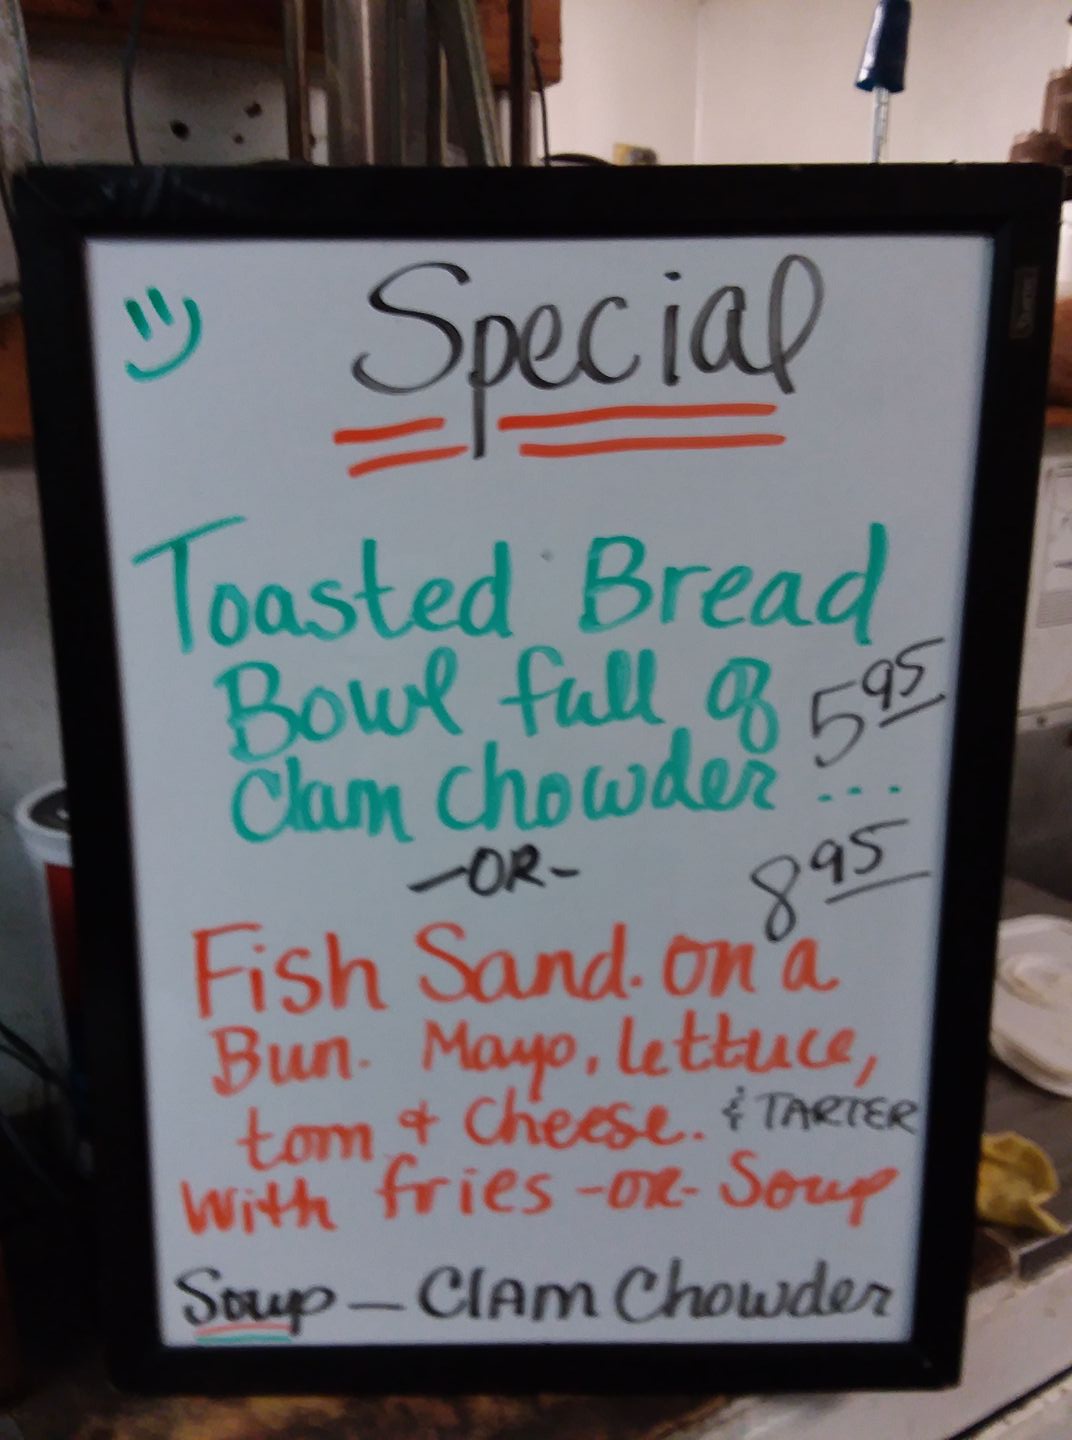 Special
Toasted Bread
Bowl full of 5.95
Clam Chowder ...
-OR- 8.95
Fish Sand. on a
Bun. Mayo, lettuce,
tom & Cheese. & TARTER
With fries -OR- Soup
Soup - Clam Chowder